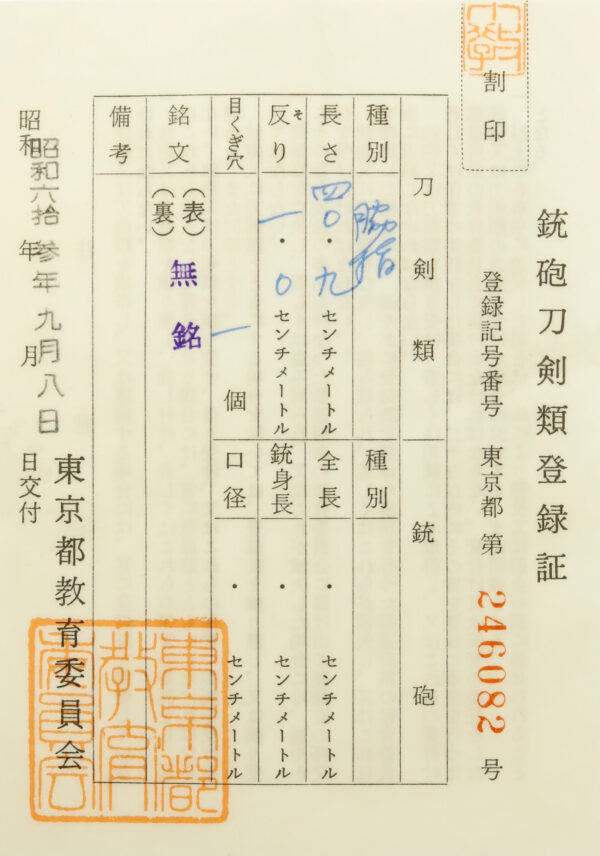 割印
銃砲刀剣類登録証
登録記号番号 東京都 第 246082 号
刀剣類
種別 脇指
長さ 四〇・九 センチメートル
反り 一・〇 センチメートル
そ
目くぎ穴 一 個
銃砲
種別
全長 ・ センチメートル
銃身長 ・ センチメートル
口径 ・ センチメートル
銘文 (表) 無銘
(裏)
備考
昭和 年 月 日交付
昭和六拾参年九月八日
東京都教育委員会
東京都
教育
委員会